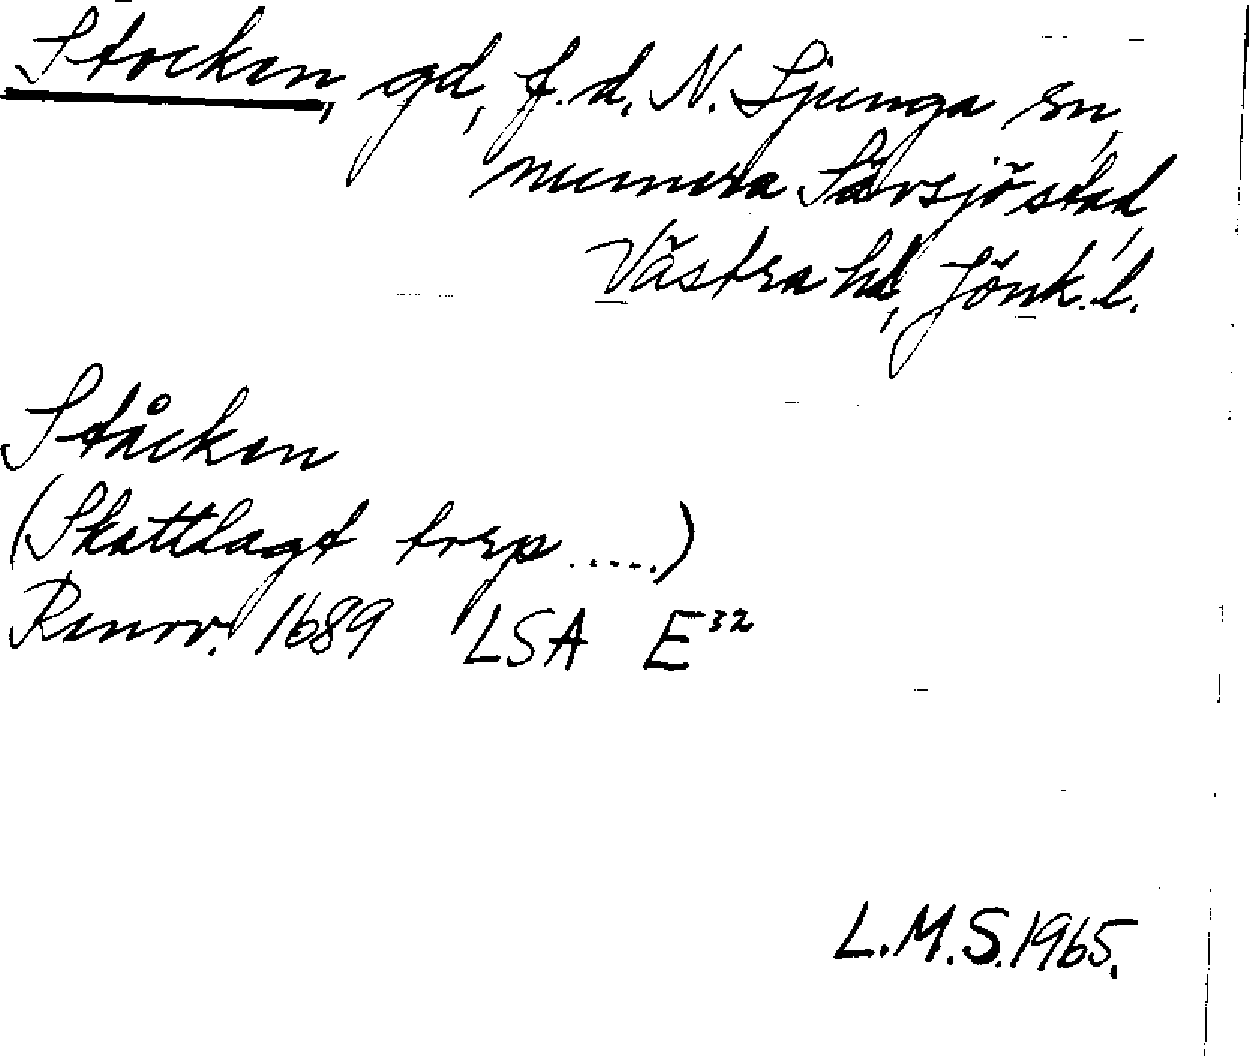 Stocken, gd, f.d. N. Ljunga sn,
numera Sävsjö stad,
Västra hd, Jönk. l.
Ståcken
(Skattlagt torp .....)
Renov. 1689 LSA E³²
L.M.S. 1965.